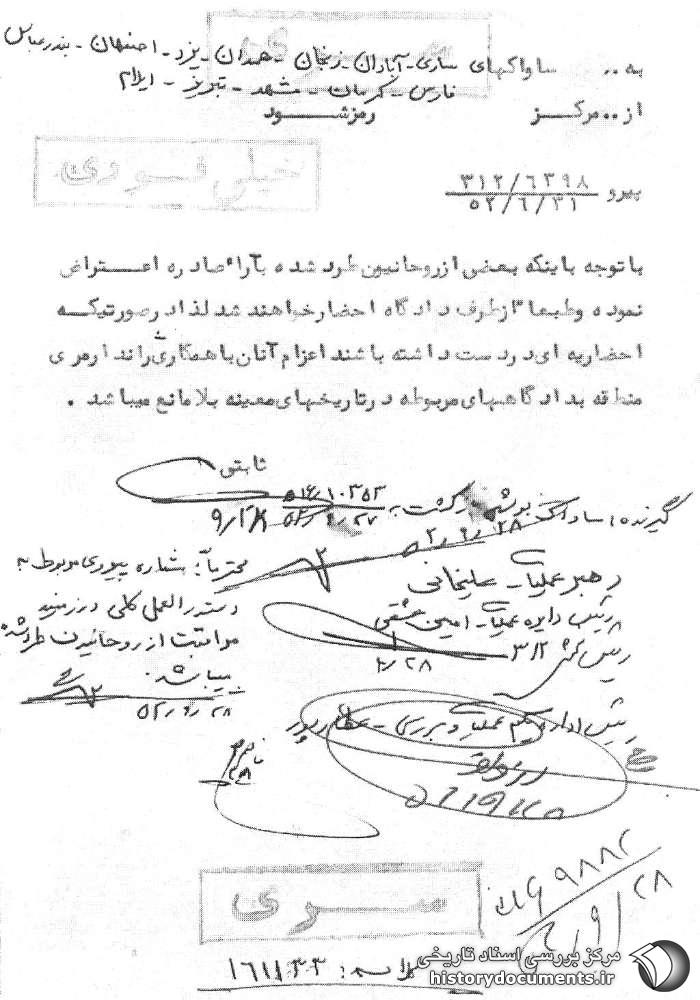 سری
به .. ساواکهای ساری - آبادان - زنجان - همدان - یزد - اصفهان - بندرعباس
فارس - کرمان - مشهد - تبریز - ایلام
از .. مرکز رمز شود
خیلی فوری
پیرو ۳۱۲/۶۳۹۸
۵۲/۶/۳۱
با توجه باینکه بعضی از روحانیون طرد شده بآراء صادره اعتراض
نموده و طبعا" از طرف دادگاه احضار خواهند شد لذا در صورتیکه
احضاریه ای در دست داشته باشند اعزام آنان با همکاری ژاندارمری
منطقه بدادگاههای مربوطه در تاریخهای معینه بلامانع میباشد .
ثابتی
۹/۲۸
گیرنده: ساواک بوشهر
۵۲/۹/۲۷
۵۲/۹/۲۸
رهبر عملیات - سلیمانی
رئیس دایره عملیات - امین عشقی
رئیس بخش ۳۱۲
۹/۲۸
رئیس اداره یکم عملیات و بررسی - عطارپور
محترماً: شماره پیروی مربوط به
دستورالعمل کلی در زمینه
مراقبت از روحانیون طرد شده
میباشد.
۵۲/۹/۲۸
۹۸۸۲
۹/۲۸
سری
۱۶۱۱۳۳
مرکز بررسی اسناد تاریخی
historydocuments.ir